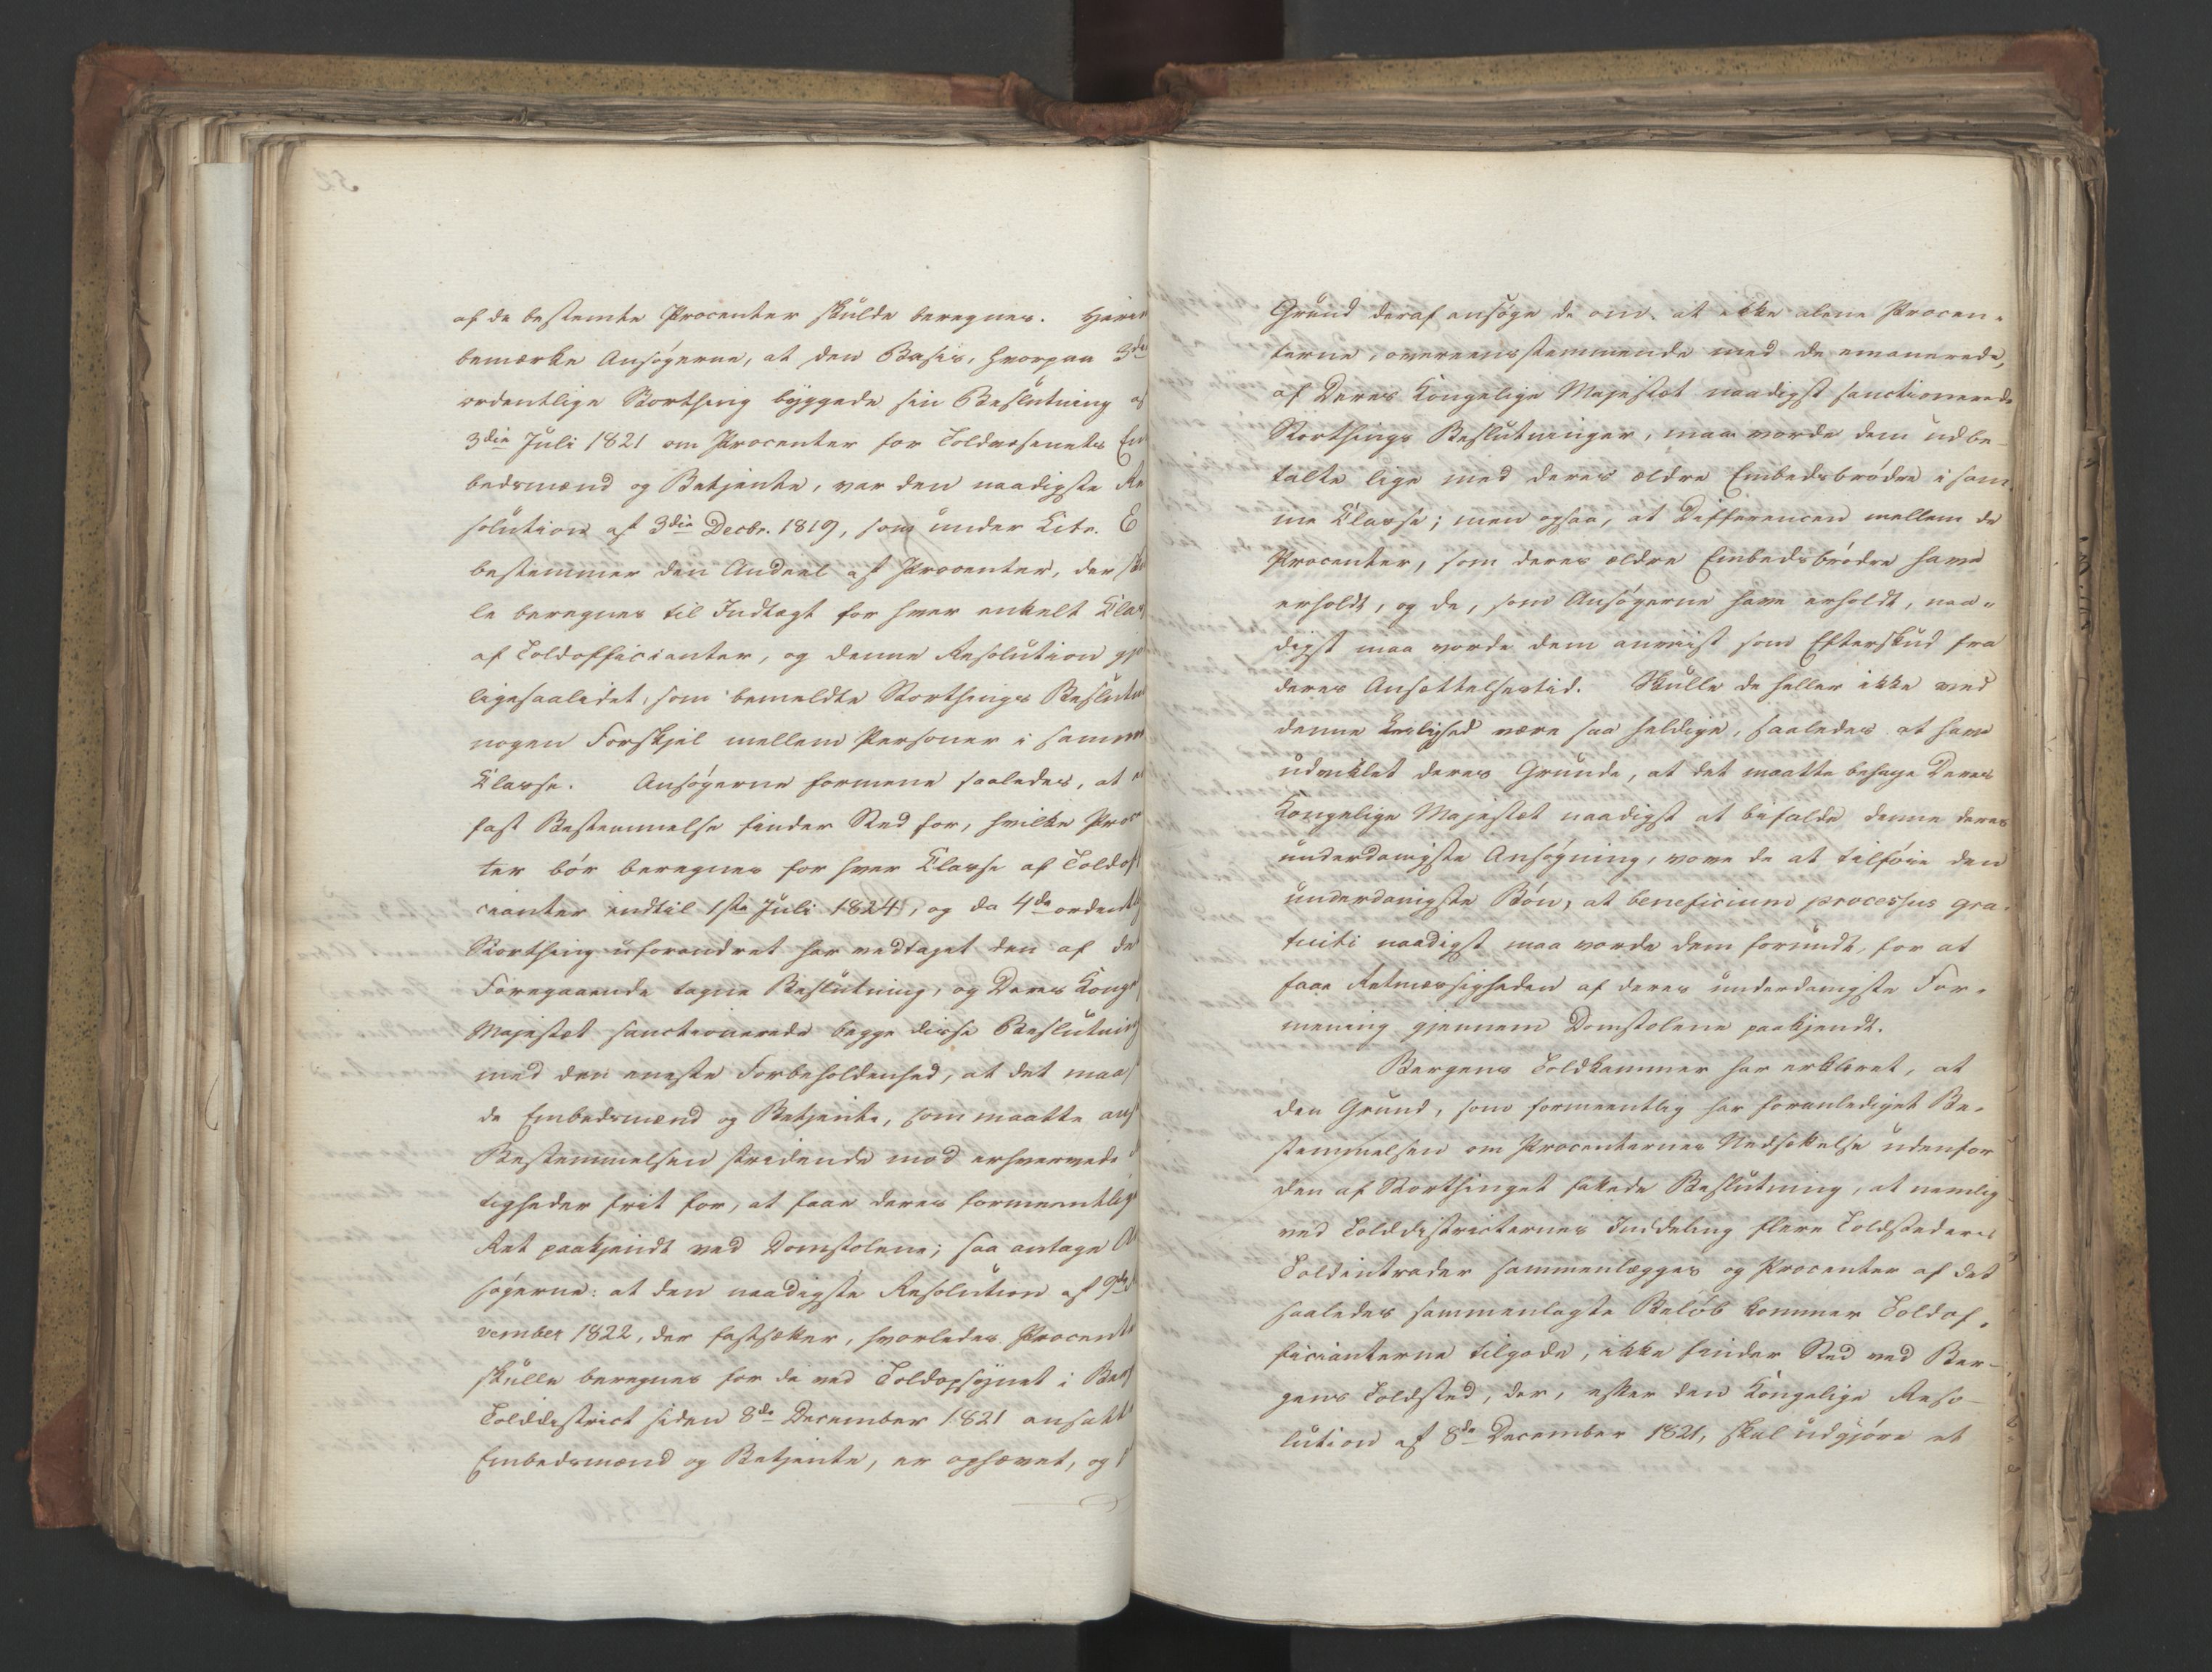 af de bestemte Procenter skulde beregnes. Herin
bemærke Ansøgerne, at den Basis, hvorpaa 3die
ordentlige Storthing byggede sin Beslutning af
3die Juli 1821 om Procenter for Toldvæsenets Em
bedsmænd og Betjente, var den naadigste Re
solution af 3die Decbr. 1819, som under Litr. E
bestemmer den Andeel af Procenter, der skul
le beregnes til Indtægt for hver enkelt Clas
af Toldofficianter, og denne Resolution gjør
ligesaalidet, som bemeldte Storthings Beslutn
nogen Forskjel mellem Personer i samme
Classe. Ansøgerne formene saaledes, at en
fast Bestemmelse finder Sted for, hvilke Procen
ter bør beregnes for hver Classe af Toldoffi
cianter indtil 1ste Juli 1824, og da 4de ordentlig
Storthing uforandret har vedtaget den af det
Foregaaende tagne Beslutning, og Deres Kongel
Majestæt sanctionerede begge disse Beslutning
med den eneste Forbeholdenhed, at det maa
de Embedsmænd og Betjente, som maatte ans
Bestemmelsen stridende mod erhvervede
tigheder frit for, at faae deres formeentlige
Ret paakjendt ved Domstolene; saa antage An
søgerne: at den naadigste Resolution af 9de
vember 1822, der fastsætter, hvorledes Procente
skulle beregnes for de ved Toldopsynet i Berg
Tolddistrict siden 8de December 1821 ansatte
Embedsmænd og Betjente, er ophævet, og
Grund deraf ansøge de om, at ikke alene Procen-
terne, overeensstemmende med de emanerede,
af Deres Kongelige Majestæt naadigst sanctionerede
Storthings Beslutninger, maa vorde dem udbe-
talte lige med deres ældre Embedsbrødre i sam-
me Classe; men ogsaa, at Differencen mellem de
Procenter, som deres ældre Embedsbrødre have
erholdt, og de, som Ansøgerne have erholdt, naa-
digst maa vorde dem anviist som Efterskud fra
deres Ansættelsestid. Skulle de heller ikke ved
denne Leilighed være saa heldige, saaledes at have
udviklet deres Grunde, at det maatte behage Deres
Kongelige Majestæt naadigst at bifalde denne deres
underdanigste Ansøgning, vove de at tilføie den
underdanigste Bøn, at beneficium processus gra-
tuiti naadigst maa vorde dem forundt, for at
faae Retmæssigheden af deres underdanigste For-
mening gjennem Domstolene paakjendt.
Bergens Toldkammer har erklæret, at
den Grund, som formeentlig har foranlediget Be-
stemmelsen om Procenternes Nedsættelse udenfor
den af Storthinget fattede Beslutning, at nemlig
ved Tolddistricternes Inddeling flere Toldsteders
Toldintrader sammenlægges og Procenter af det
saaledes sammenlagte Beløb kommer Toldof-
ficianterne tilgode, ikke finder Sted ved Ber-
gens Toldsted, der, efter den Kongelige Reso-
lution af 8de December 1821, skal udgjøre et